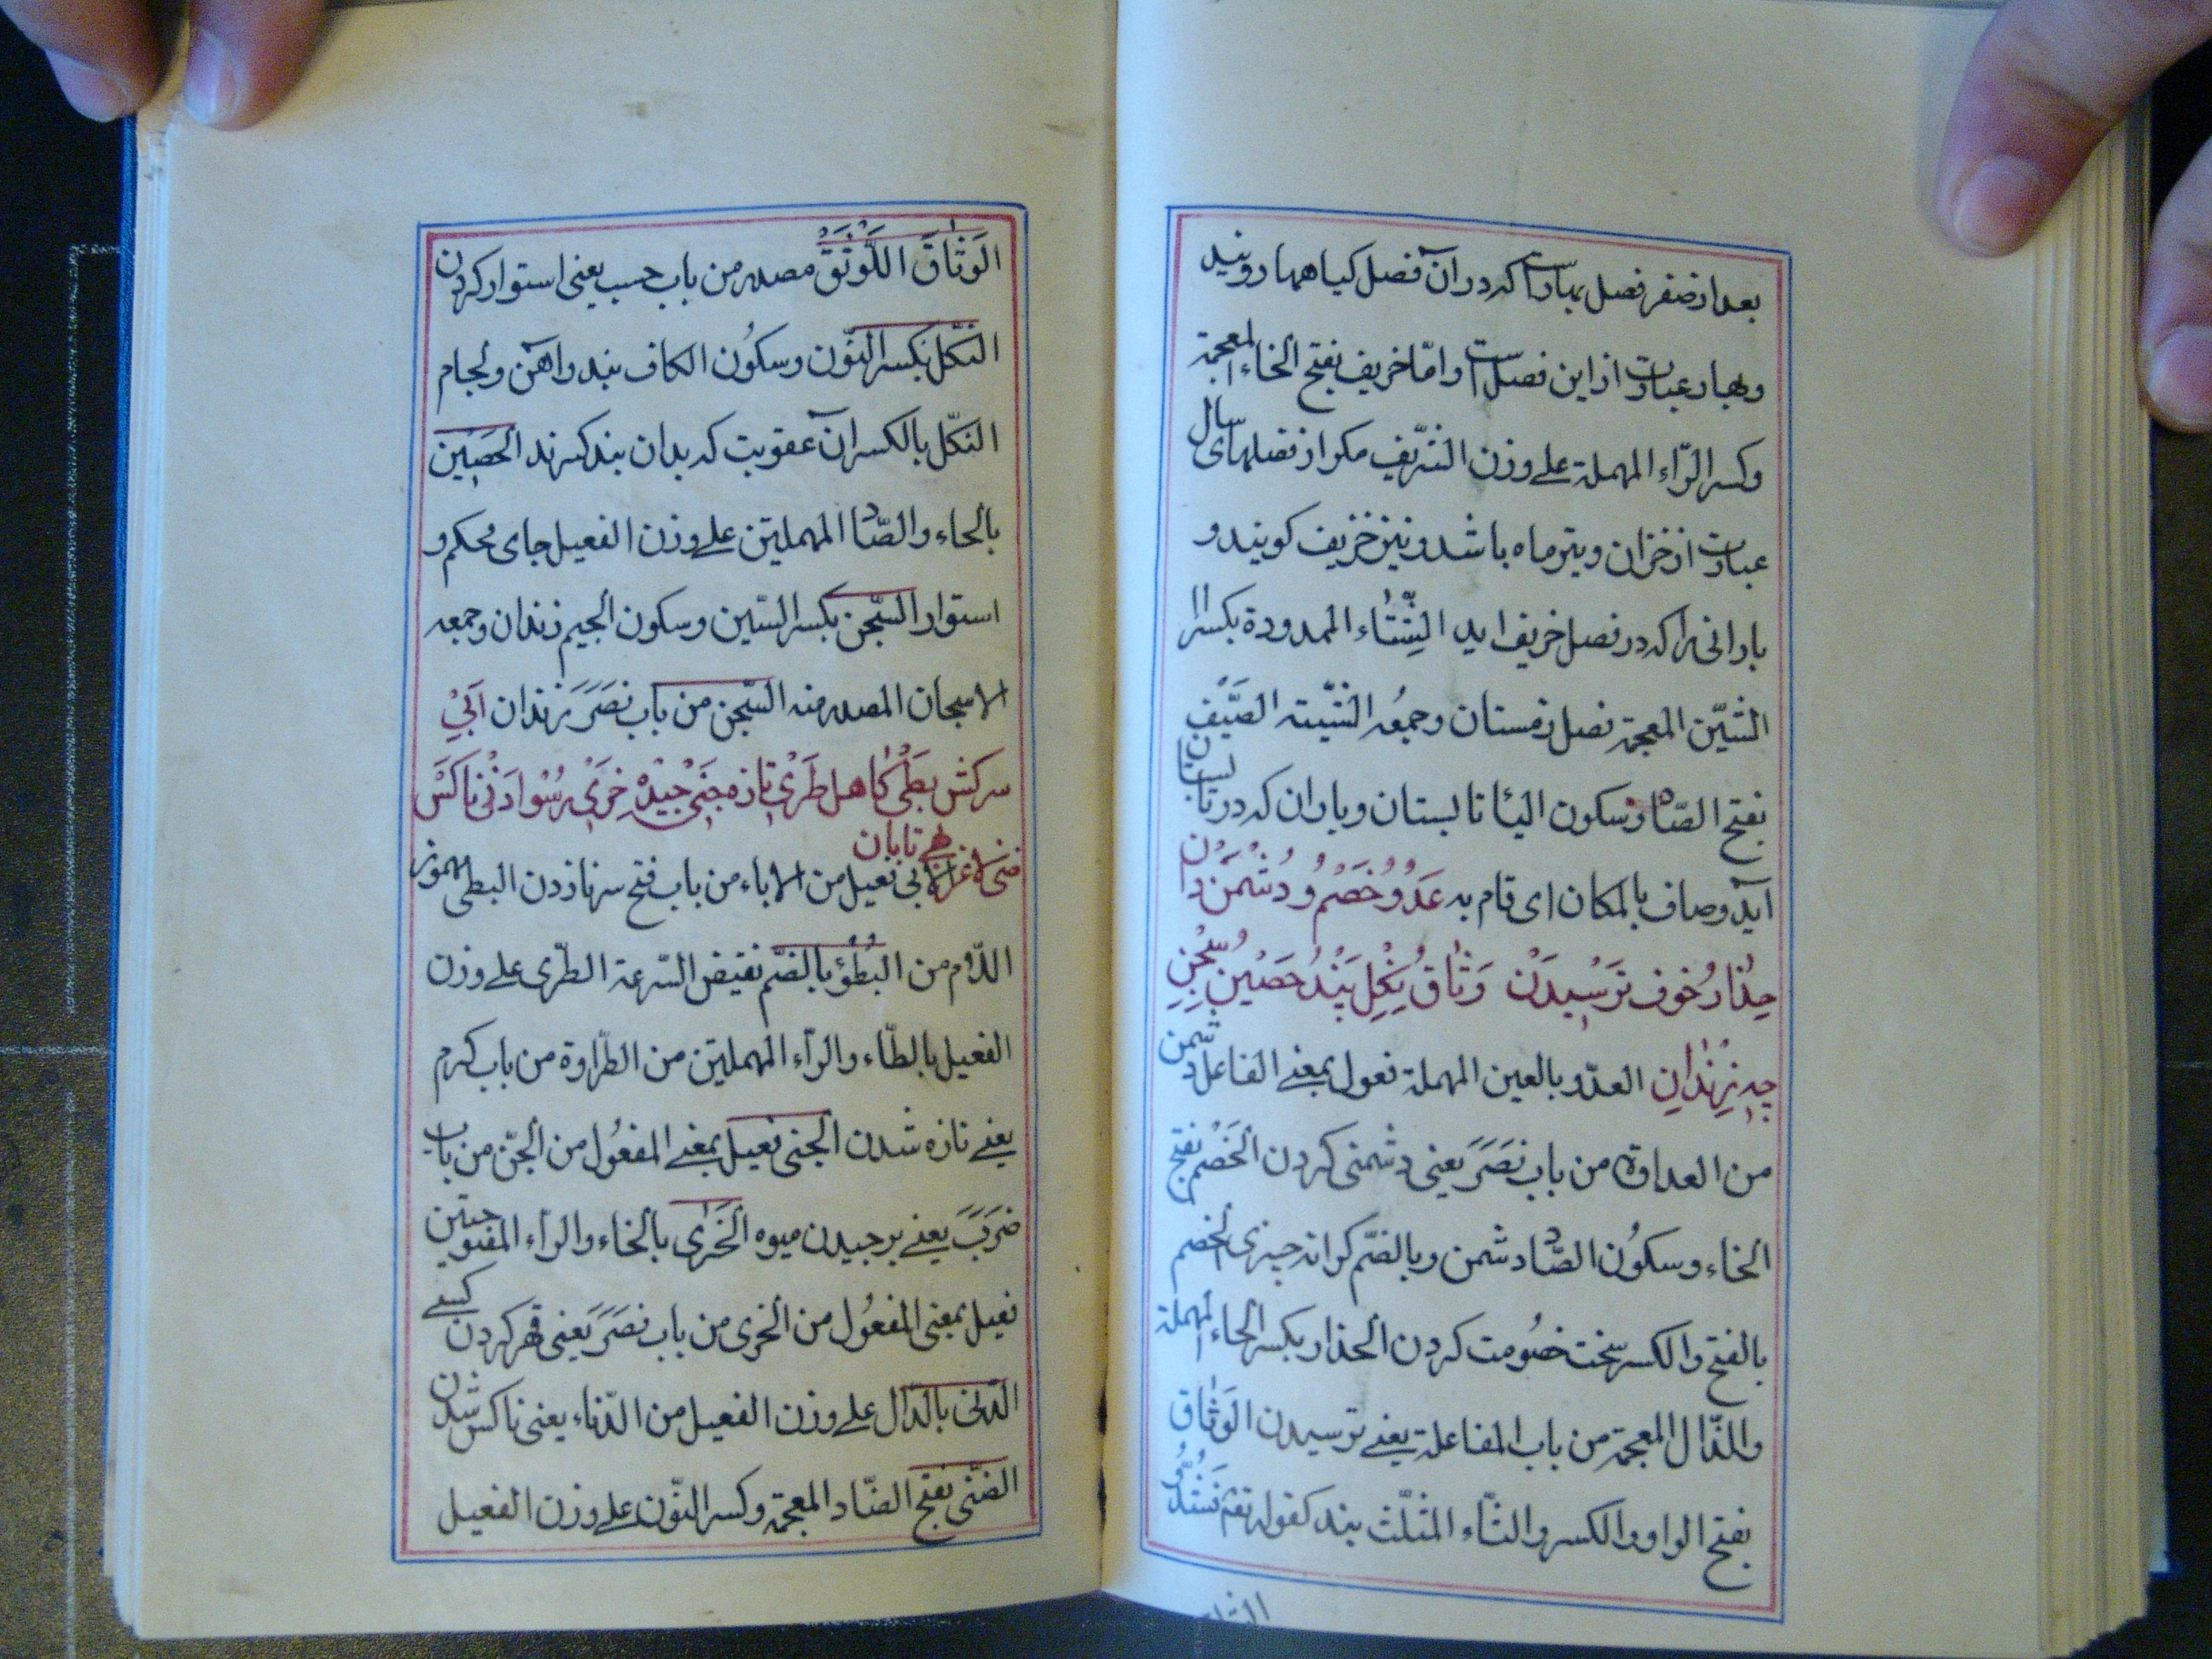 بعد از صفر فصل بهار است که در ان فصل کیاهها رویند
وبهار عبارت از این فصل است وامّا خریف بفتح الخاء المعجمة
وکسر الرّاء المهملة علی وزن الشّریف مکر از فصلهای سال
عبارت از خزان وتیر ماه باشد ونیز خریف کویند و
بارانی را که در فصل خریف اید الشِّتَاء الممدودة بکسر
الشّین المعجمة فصل زمستان وجمعُه الشّیته الصَّیف
بفتح الصّاد وسکون الیا تابستان وباران که در تابستان
آید وصاف بالمکان ای قام به عَدُوُّ خَصْمُ ودُشْمَن دان
حِذَارُ خوف تَرْسِیدَنْ وَثَاقُ نِکْلِ بَنْدُ حَصِیْنِ سِجْنِ
چه زِنْدَانِ العدّو بالعین المهملة فعول بمعنی الفاعل دشمن
من العداوة من باب نَصَرَ یعنی دشمنی کردن الخَصْم بفتح
الخاء وسکُون الصّاد دشمن وبالضّم کرانه چیزی الخصم
بالفتح والکسر سخت خصُومت کردن الحذار بکسر الحاء المهملة
والذّال المعجمة من باب المفاعلة یعنی ترسیدن الوَثَاق
بفتح الواو والکسر والثّاء المثلّث بند کقوله تعم فَشُدُّو
الوَثَاقَ اللّوثَقُ مصدر من باب حسب یعنی استوار کردن
النّکل بکسر النّون وسکُون الکاف بند واهن ولجام
النّکل بالکسر ان عقوبت که بدان بند کسرند الحَصِین
بالحاء والصّاد المهملتین علی وزن الفعیل جای محکم و
استوار السّجن بکسر السّین وسکون الجیم زندان وجمعه
الاسجان المصدر منه السّجن من باب نَصَرَ زندان اَبِیْ
سرکش بَطِیْ کاهل طَرِیْ تازه جَنِیْ چیْدَهْ خَزِیْ رُسْوا دَنِیْ ناکَسْ
ضنی لاغر الابی فعیل من الاباء من باب فتح سر باز زدن البطی مهموز
تابان
اللّام من البُطُؤ بالضّم نقیض السّرعة الطّری علی وزن
الفعیل بالطّاء والرّاء المهملتین من الطّراوة من باب کرم
یعنی تازه شدن الجنی فعیل بمعنی المفعُول من الجنّ من باب
ضَرَبَ یعنی برچیدن میوه الخَزی بالخاء والراء المفتوحتین
فعیل بمعنی المفعُول من الخزی من باب نصَرَ یعنی قهر کردن کسی
الدّنی بالدّال علی وزن الفعیل من الدّناء یعنی ناکس شدن
الضّنی بفتح الضّاد المعجمة وکسر النّون علی وزن الفعیل